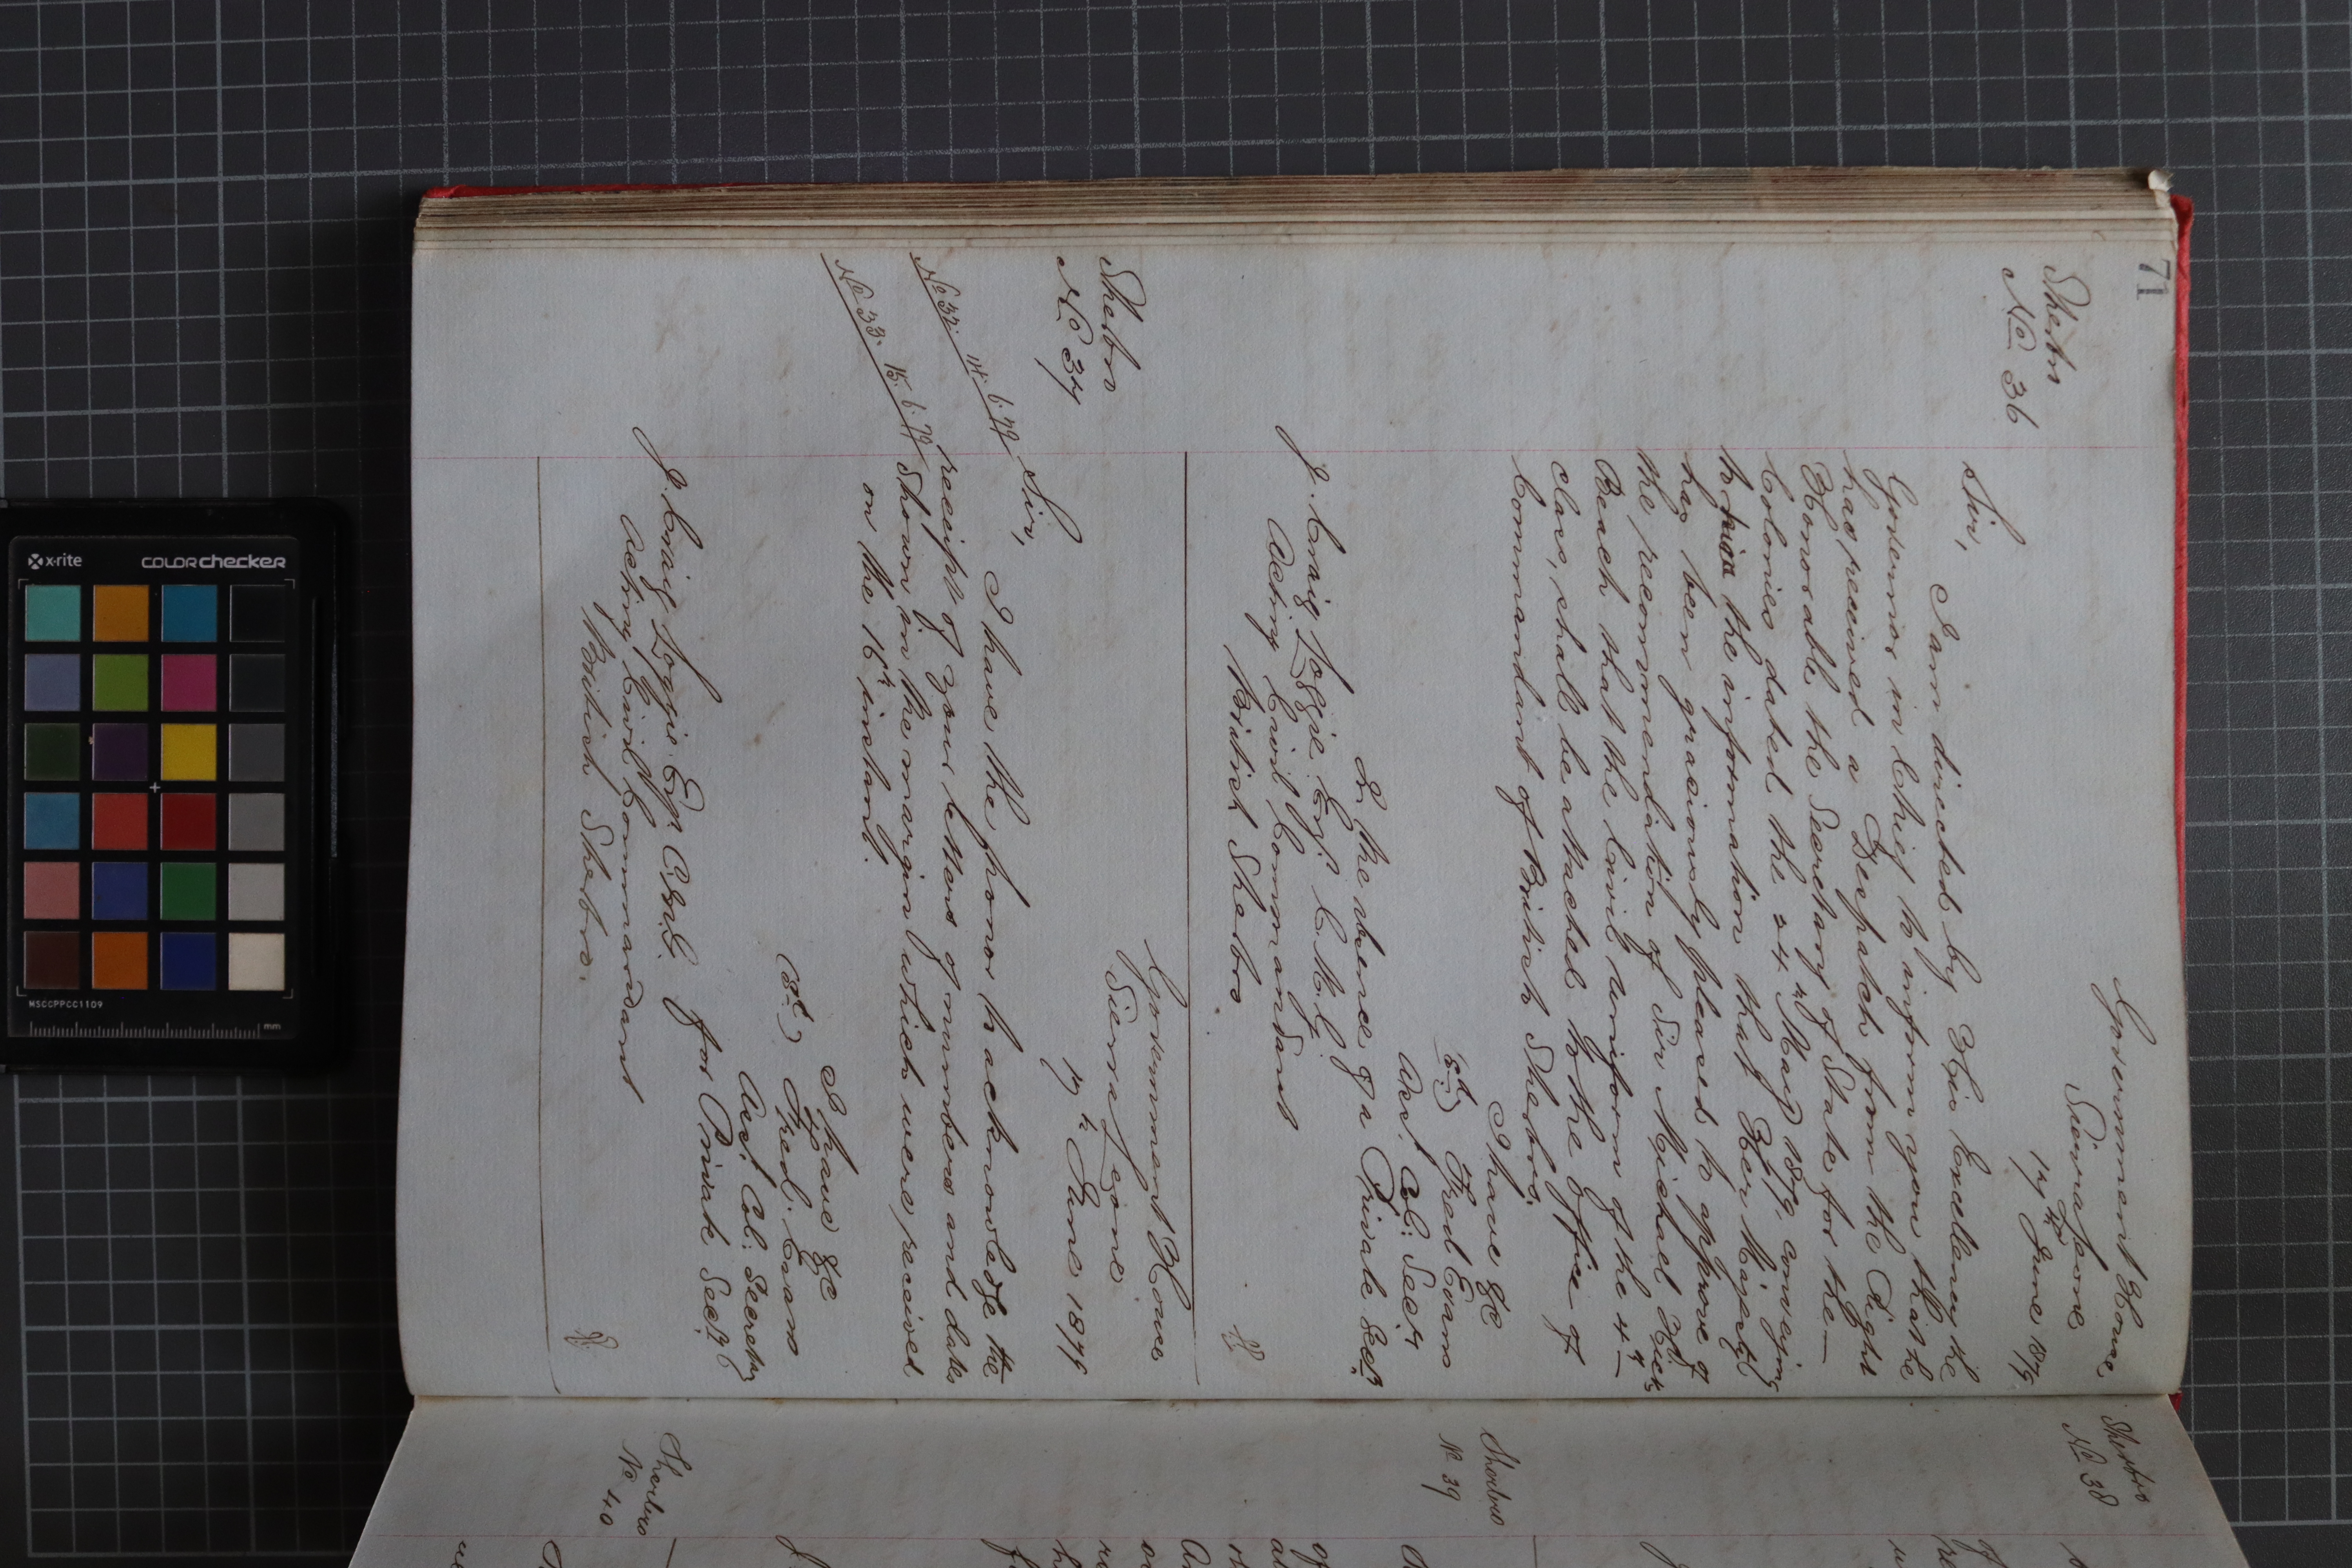 71
Sherbro
No 36
Government House
Sierra Leone
14th June 1879
Sir,
I am directed by His Excellency the
Governor in Chief to inform you that he
has received a Despatch from the Right
Honorable the Secretary of State for the
Colonies dated the 24th May 1879, conveying
to him the information that Her Majesty
has been graciously pleased to approve of
the recommendation of Sir Michael Hicks
Beach that the Civil uniform of the 4th
class, shall be attached to the Office of
Commandant of British Sherbro.
I have &c
(Sd) Fred Evans
Act. Col: Secy
In the absence of a Private Secy
J. Craig Loggie Esq. C.M.G.
Acting Civil Commandant
British Sherbro
Sherbro
No 37
Government House
Sierra Leone
17th June 1879
Sir,
I have the honor to acknowledge the
No 32. 14.6.79
receipt of your letters of numbers and dates
No 33. 15.6.79
shown in the margin which were received
on the 16th instant.
I have &c
(Sd) Fred. Evans
Act. Col: Secretary
for Private Secy
J. Craig Loggie Esq. C.M.G.
Acting Civil Commandant
British Sherbro.
Sherbro
No 38
Sherbro
No 39
Sherbro
No 40
x-rite
colorchecker
MSCCPPCC1109
mm